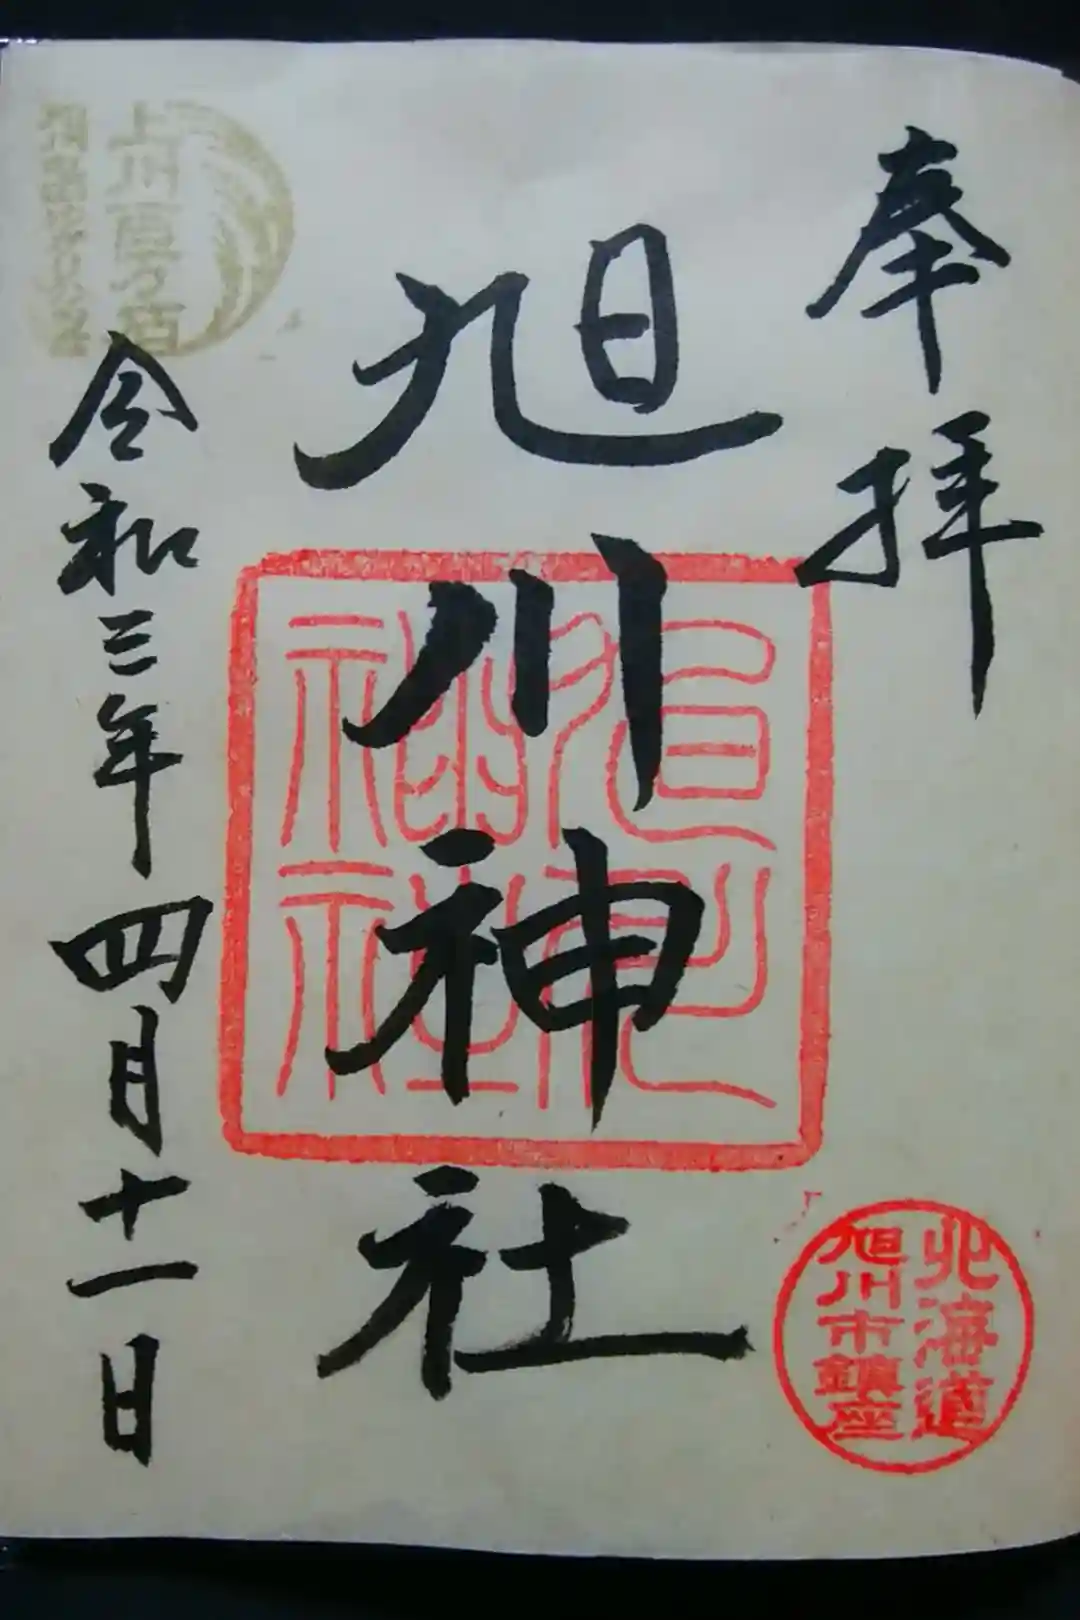 奉拝
旭川神社
旭川
神社
北海道
旭川市鎮座
上川百万石
令和三年四月十一日